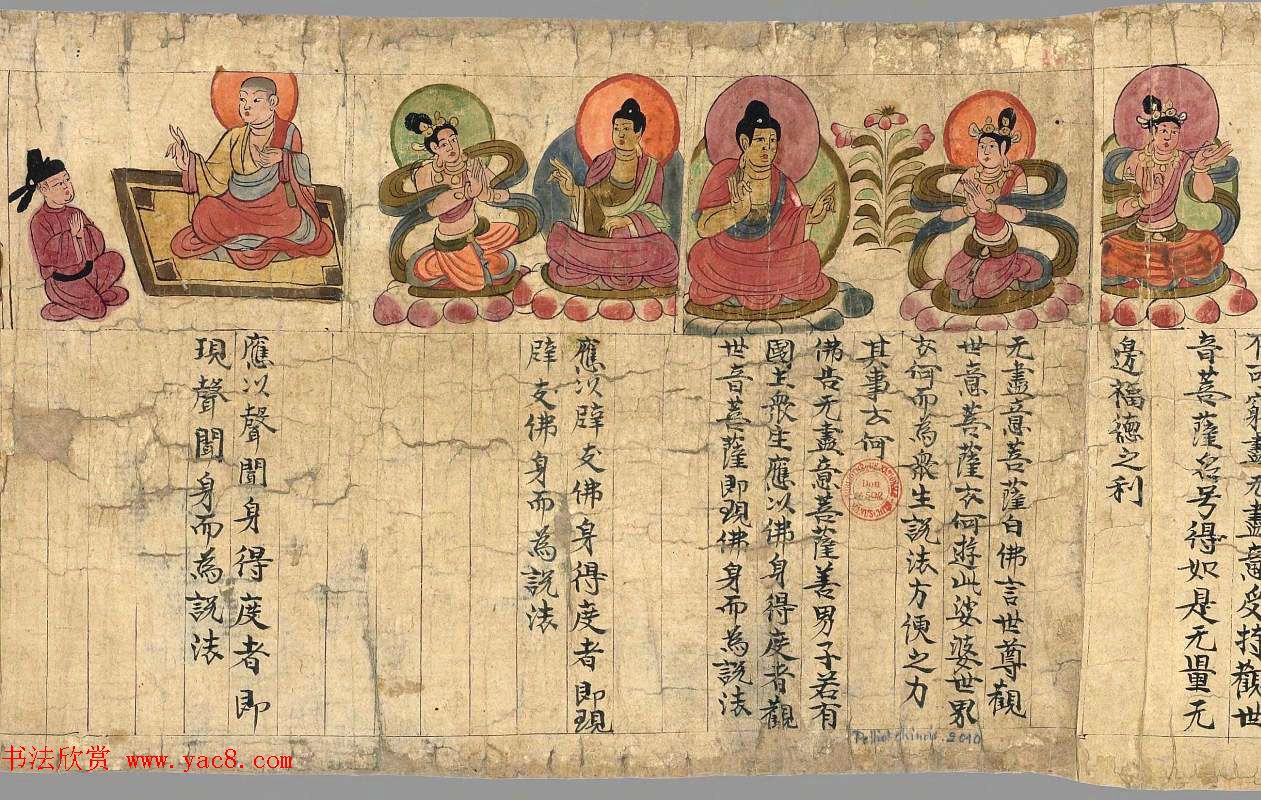 不可窮盡无盡意受持觀世
音菩薩名号得如是无量无
邊福德之利
无盡意菩薩白佛言世尊觀
世意菩薩云何遊此娑婆世界
云何而為衆生説法方便之力
其事云何
佛告无盡意菩薩善男子若有
國土衆生應以佛身得度者觀
世音菩薩即現佛身而為説法
應以辟支佛身得度者即現
辟支佛身而為説法
應以聲聞身得度者即
現聲聞身而為説法
Pelliot chinois. 2010
DON
4502
书法欣赏 www.yac8.com